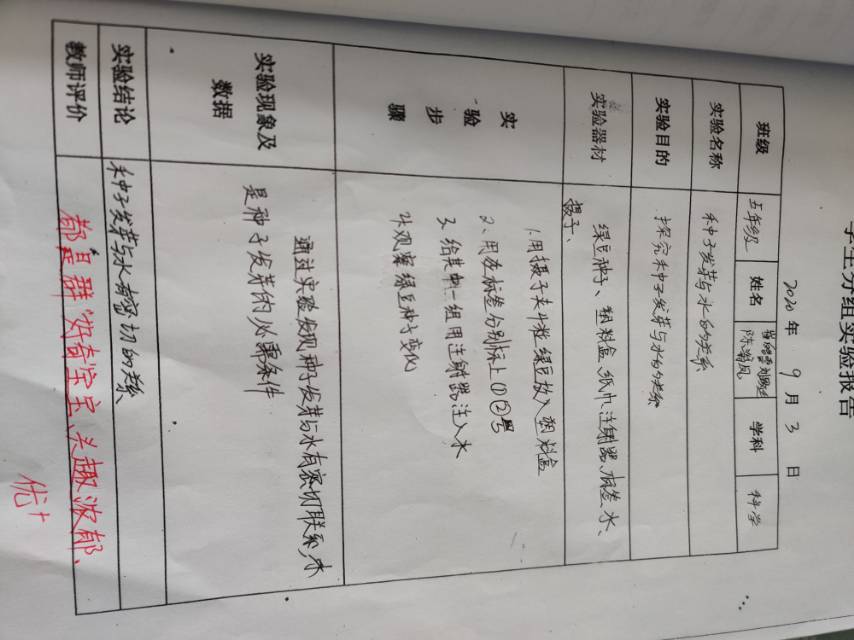 学生分组实验报告
2020 年 9 月 3 日
班级 五年级 姓名 陈瀚风 学科 科学
实验名称 种子发芽与水的关系
实验目的 探究种子发芽与水的关系
实验器材 绿豆种子、塑料盒、纸巾、注射器、标签、水、
镊子、
实验步骤
1.用镊子夹 粒绿豆放入塑料盒
2、用 标签分别标上①②号
3、给其中一组用注射器注入水
4.观察绿豆种子变化
实验现象及数据
通过实验发现种子发芽与水有密切联系,水
是种子发芽的必需条件
实验结论 种子发芽与水有密切的关系、
教师评价 都是群好奇宝宝、兴趣浓郁、
优+